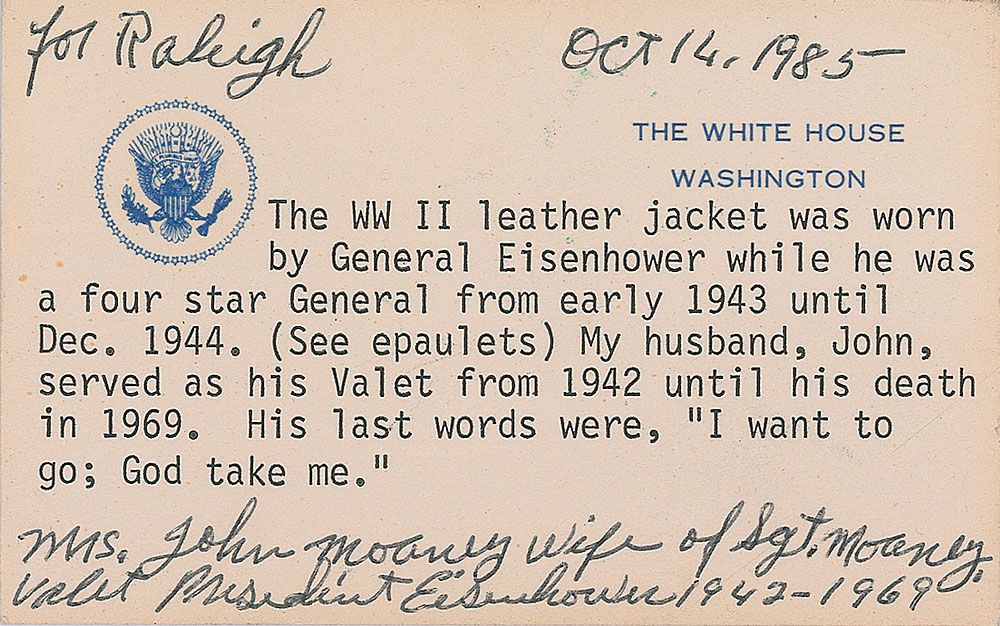 for Raleigh
Oct 14, 1985
THE WHITE HOUSE
WASHINGTON
The WW II leather jacket was worn
by General Eisenhower while he was
a four star General from early 1943 until
Dec. 1944. (See epaulets) My husband, John,
served as his Valet from 1942 until his death
in 1969. His last words were, "I want to
go; God take me."
Mrs. John Moaney wife of Sgt. Moaney
Valet President Eisenhower 1942-1969